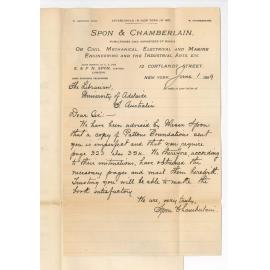 ESTABLISHED IN NEW YORK IN
SPON & CHAMBERLAIN,
PUBLISHERS AND IMPORTERS OF BOOKS
ON CIVIL, MECHANICAL, ELECTRICAL AND MARINE
ENGINEERING AND THE INDUSTRIAL ARTS, ETC.
12 CORTLANDT STREET
E. & F. N. SPON, LIMITED
LONDON
NEW YORK, June
The Librarian,
University of Adelaide
S. Australia
Dear Sir:-
We have been advised by Messrs Spon
that a copy of Pattons Foundations sent
you is imperfect and that you require
page 353 We therefore, according
to their instructions, have obtained the
necessary pages and mail them herewith.
Trusting you will be able to make the
book satisfactory
We are, very truly,
Spon & Chamberlain